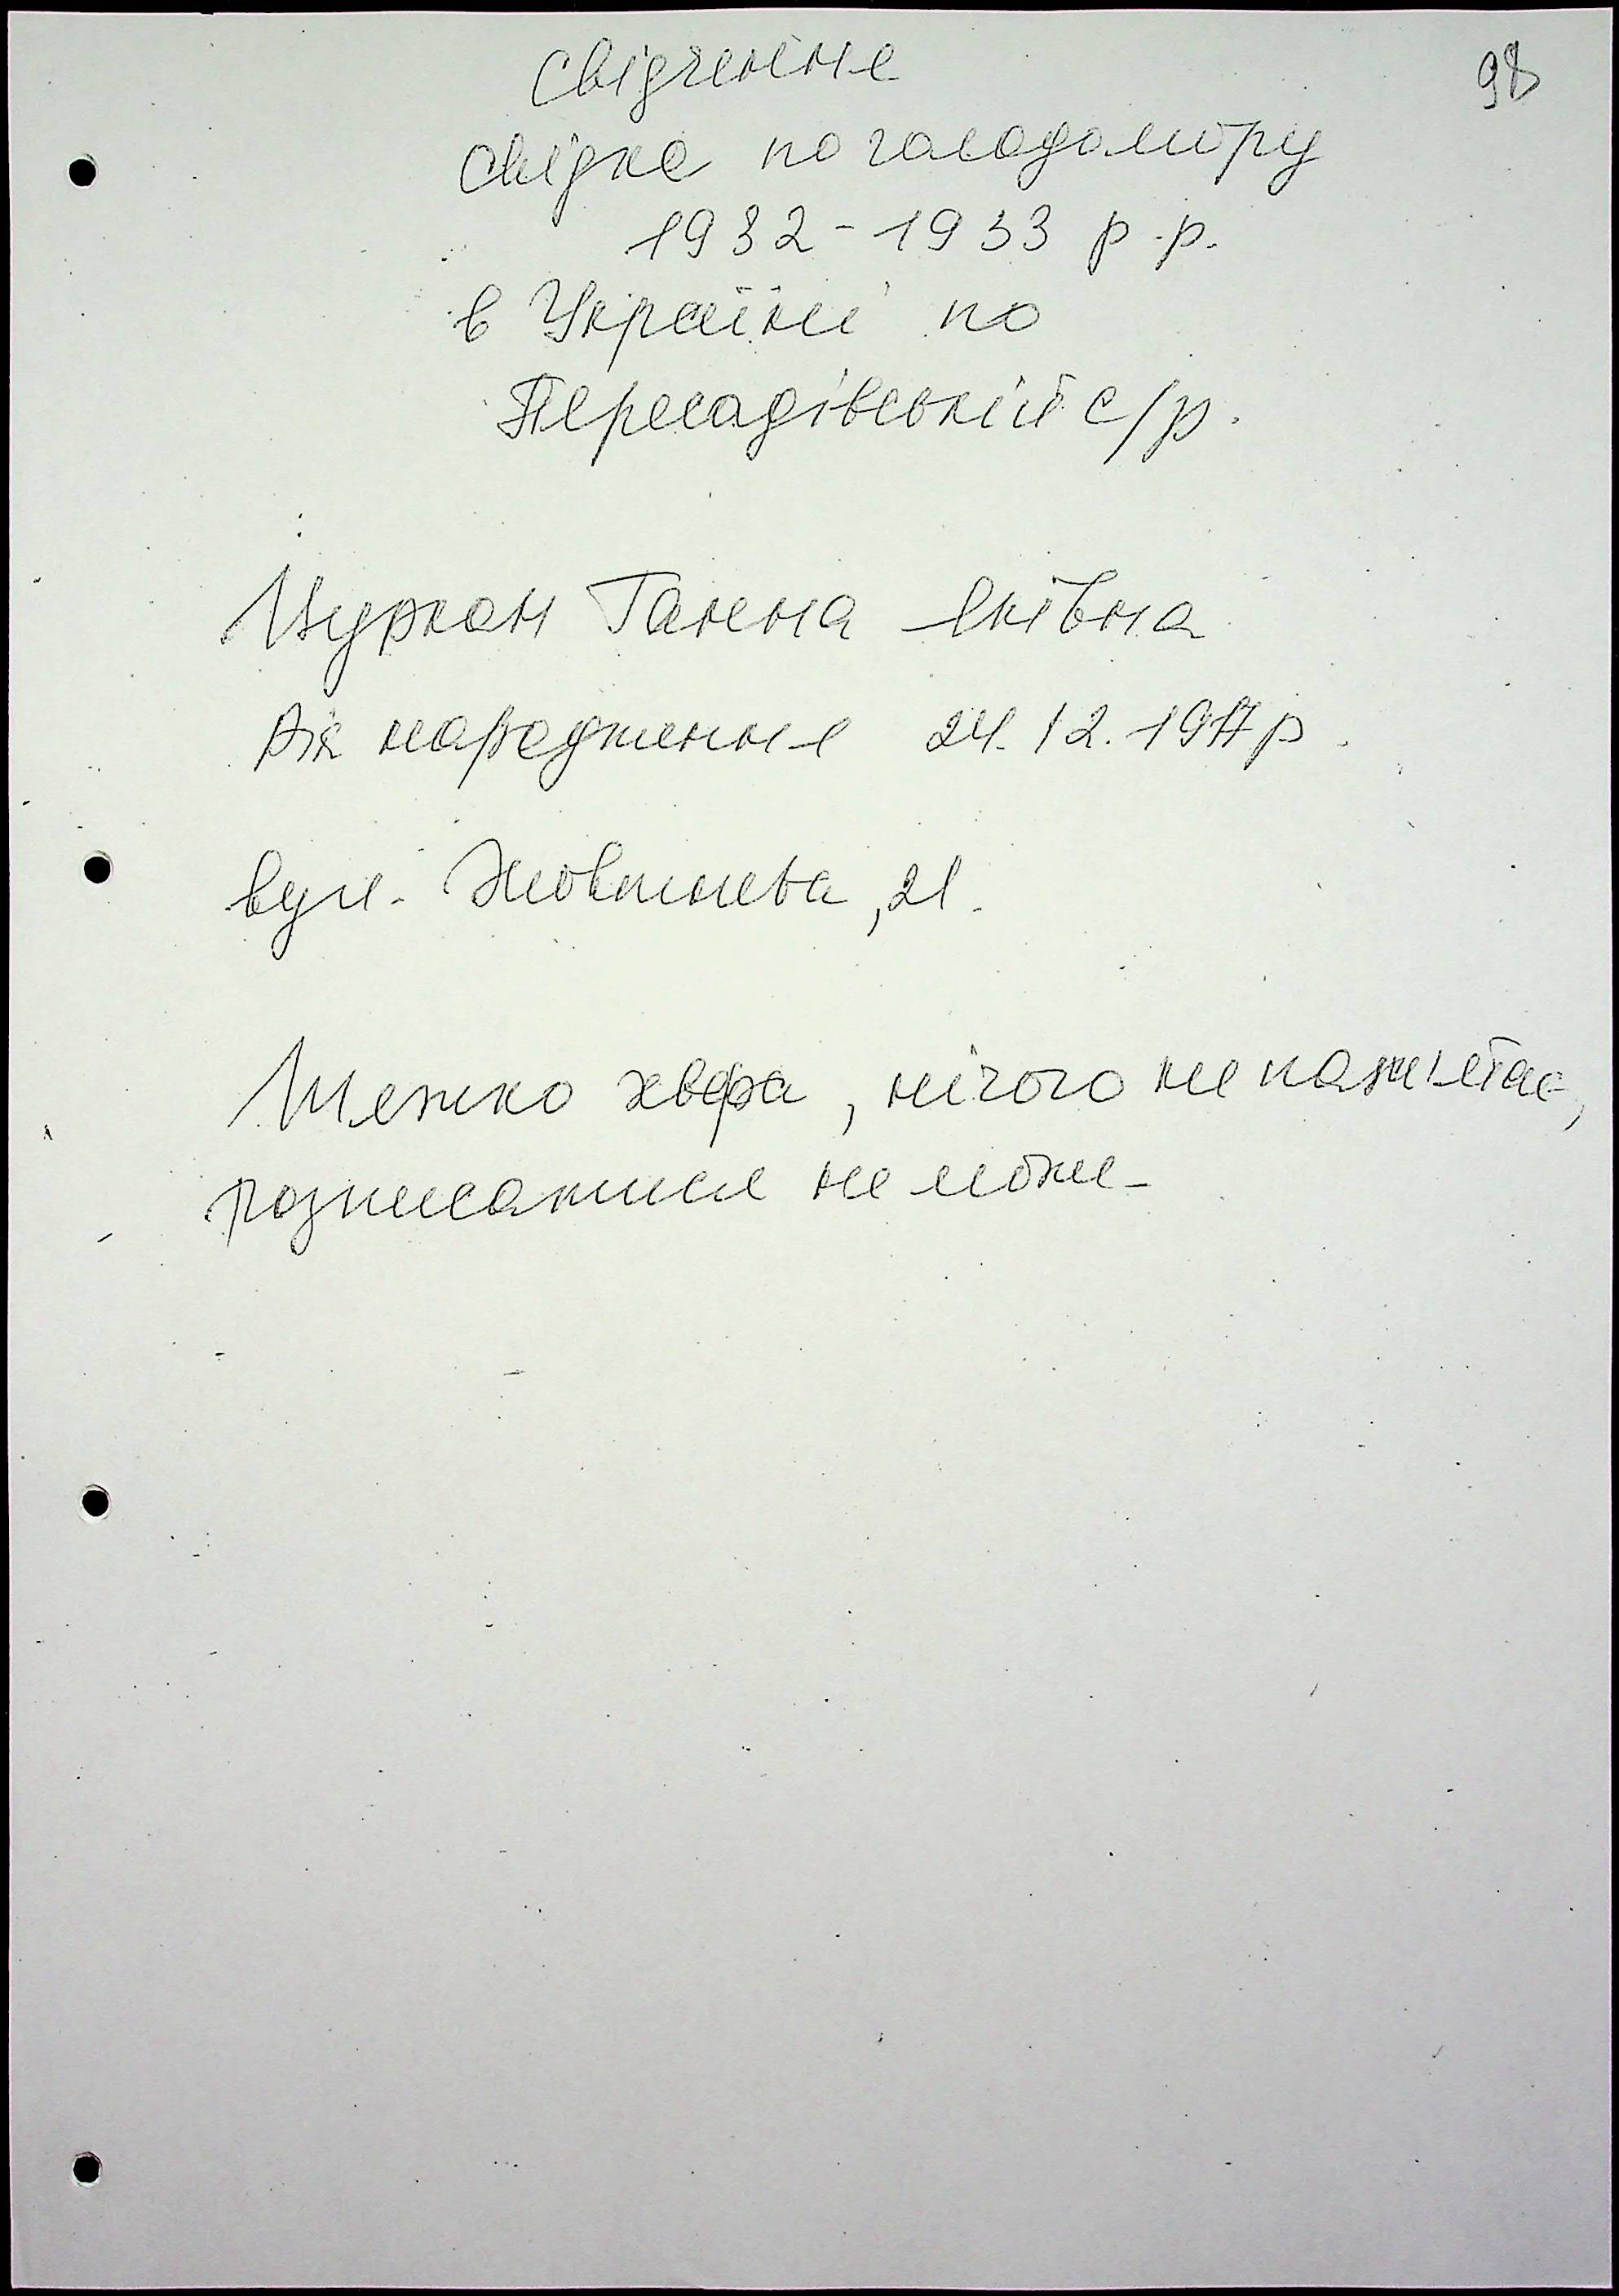 98
Свідчення
свідка по голодомору
1932-1933 р.р.
в Україні по
Пересадівській с/р.
Цуркан Ганна Яківна
Рік народження 24.12.1917р.
вул. Жовтнева, 21.
Тяжко хвора, нічого не памʼятає,
розписатися не може